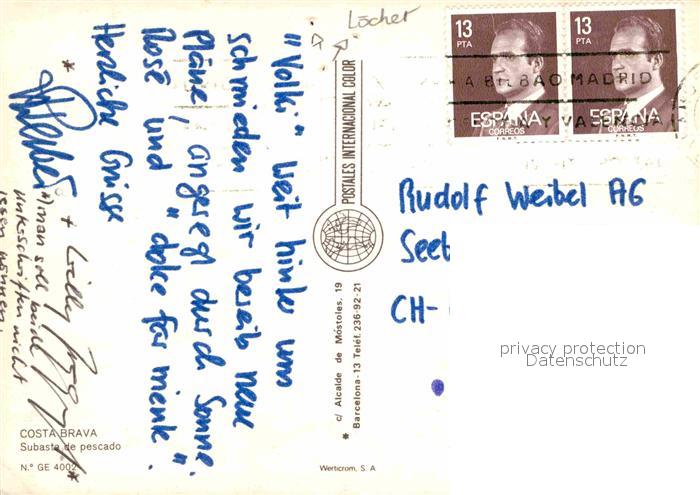 Löcher
"Volki" weit hinter uns
schmieden wir bereits neue
Pläne, angeregt durch Sonne,
Rosé und "dolce far niente".
Herzliche Grüsse
+ Lilly
*) man soll beide
Unterschriften nicht
lesen können!
13
PTA
ESPAÑA
CORREOS
F.N.M.T.
13
PTA
ESPAÑA
CORREOS
F.N.M.T.
BILBAO MADRID
Rudolf Weibel AG
CH-
privacy protection
Datenschutz
POSTALES INTERNACIONAL COLOR
* c/ Alcalde de Móstoles, 19
Barcelona-13 Teléf. 236-92-21
COSTA BRAVA
Subasta de pescado
N.º GE 4002
Werticrom, S. A